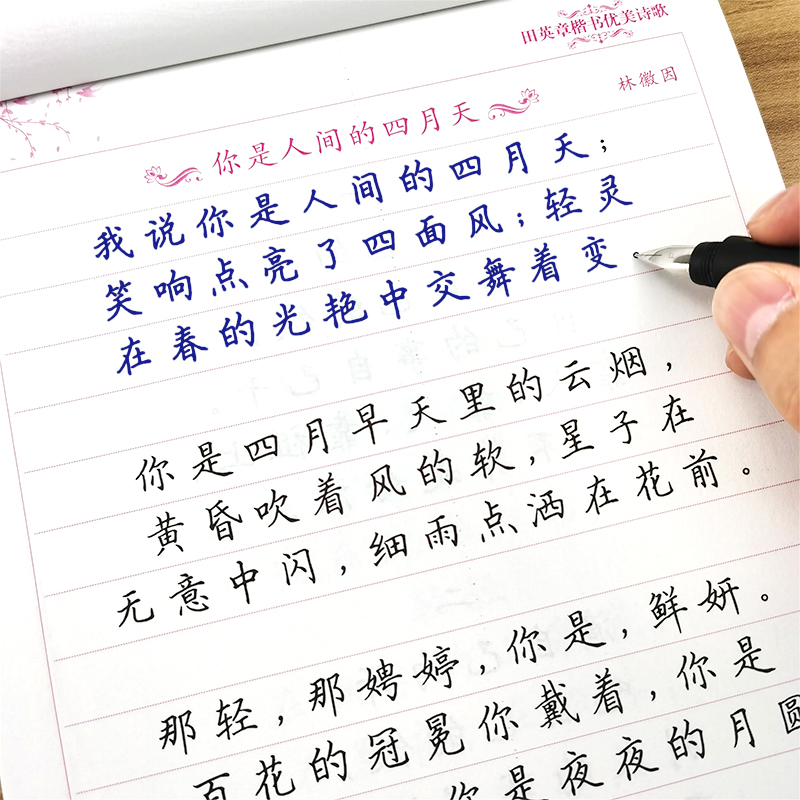 田英章楷书优美诗歌
林徽因
你是人间的四月天
我说你是人间的四月天；
笑响点亮了四面风；轻灵
在春的光艳中交舞着变
你是四月早天里的云烟，
黄昏吹着风的软，星子在
无意中闪，细雨点洒在花前。
那轻，那娉婷，你是，鲜妍。
百花的冠冕你戴着，你是
你是夜夜的月圆